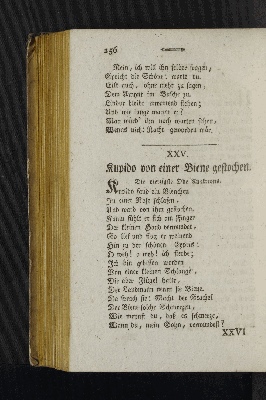 256
Nein, ich will ihn selber fragen,
Spricht die Schöne: warte du.
Eilt auch, ohne mehr zu sagen,
Dem Amynt im Busche zu.
Lindor bleibt erwartend stehen;
Und wie lange wartet er?
Man würd' ihn noch warten sehen,
Wenn's nicht Nacht geworden wär.
XXV.
Kupido von einer Biene gestochen.
Die vierzigste Ode Anakreons.
Kupido fand ein Bienchen
In einer Rose schlafen,
Und ward von ihm gestochen.
Kaum fühlt er sich am Finger
Der kleinen Hand verwundet,
So lief und flog er weinend
Hin zu der schönen Cypris:
O weh! o weh! ich sterbe;
Ich bin gebissen worden
Von einer kleinen Schlange,
Die aber Flügel hatte,
Der Landmann nennt sie Biene.
Da sprach sie: Macht der Stachel
Der Biene solche Schmerzen,
Wie meynst du, daß es schmerze,
Wenn du, mein Sohn, verwundest?
XXVI